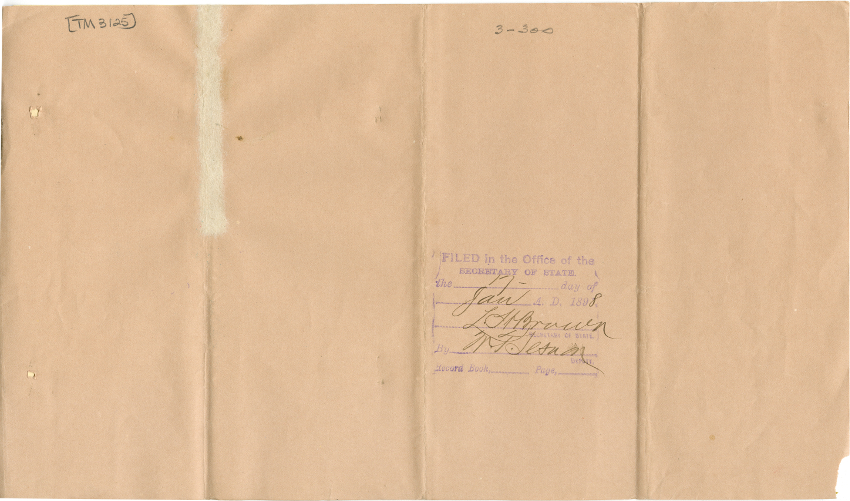 [TM 3125]
3-300
FILED in the Office of the
SECRETARY OF STATE.
the day of
Jan A. D. 1898.
L H Brown
SECRETARY OF STATE.
By
Record Book, Page,